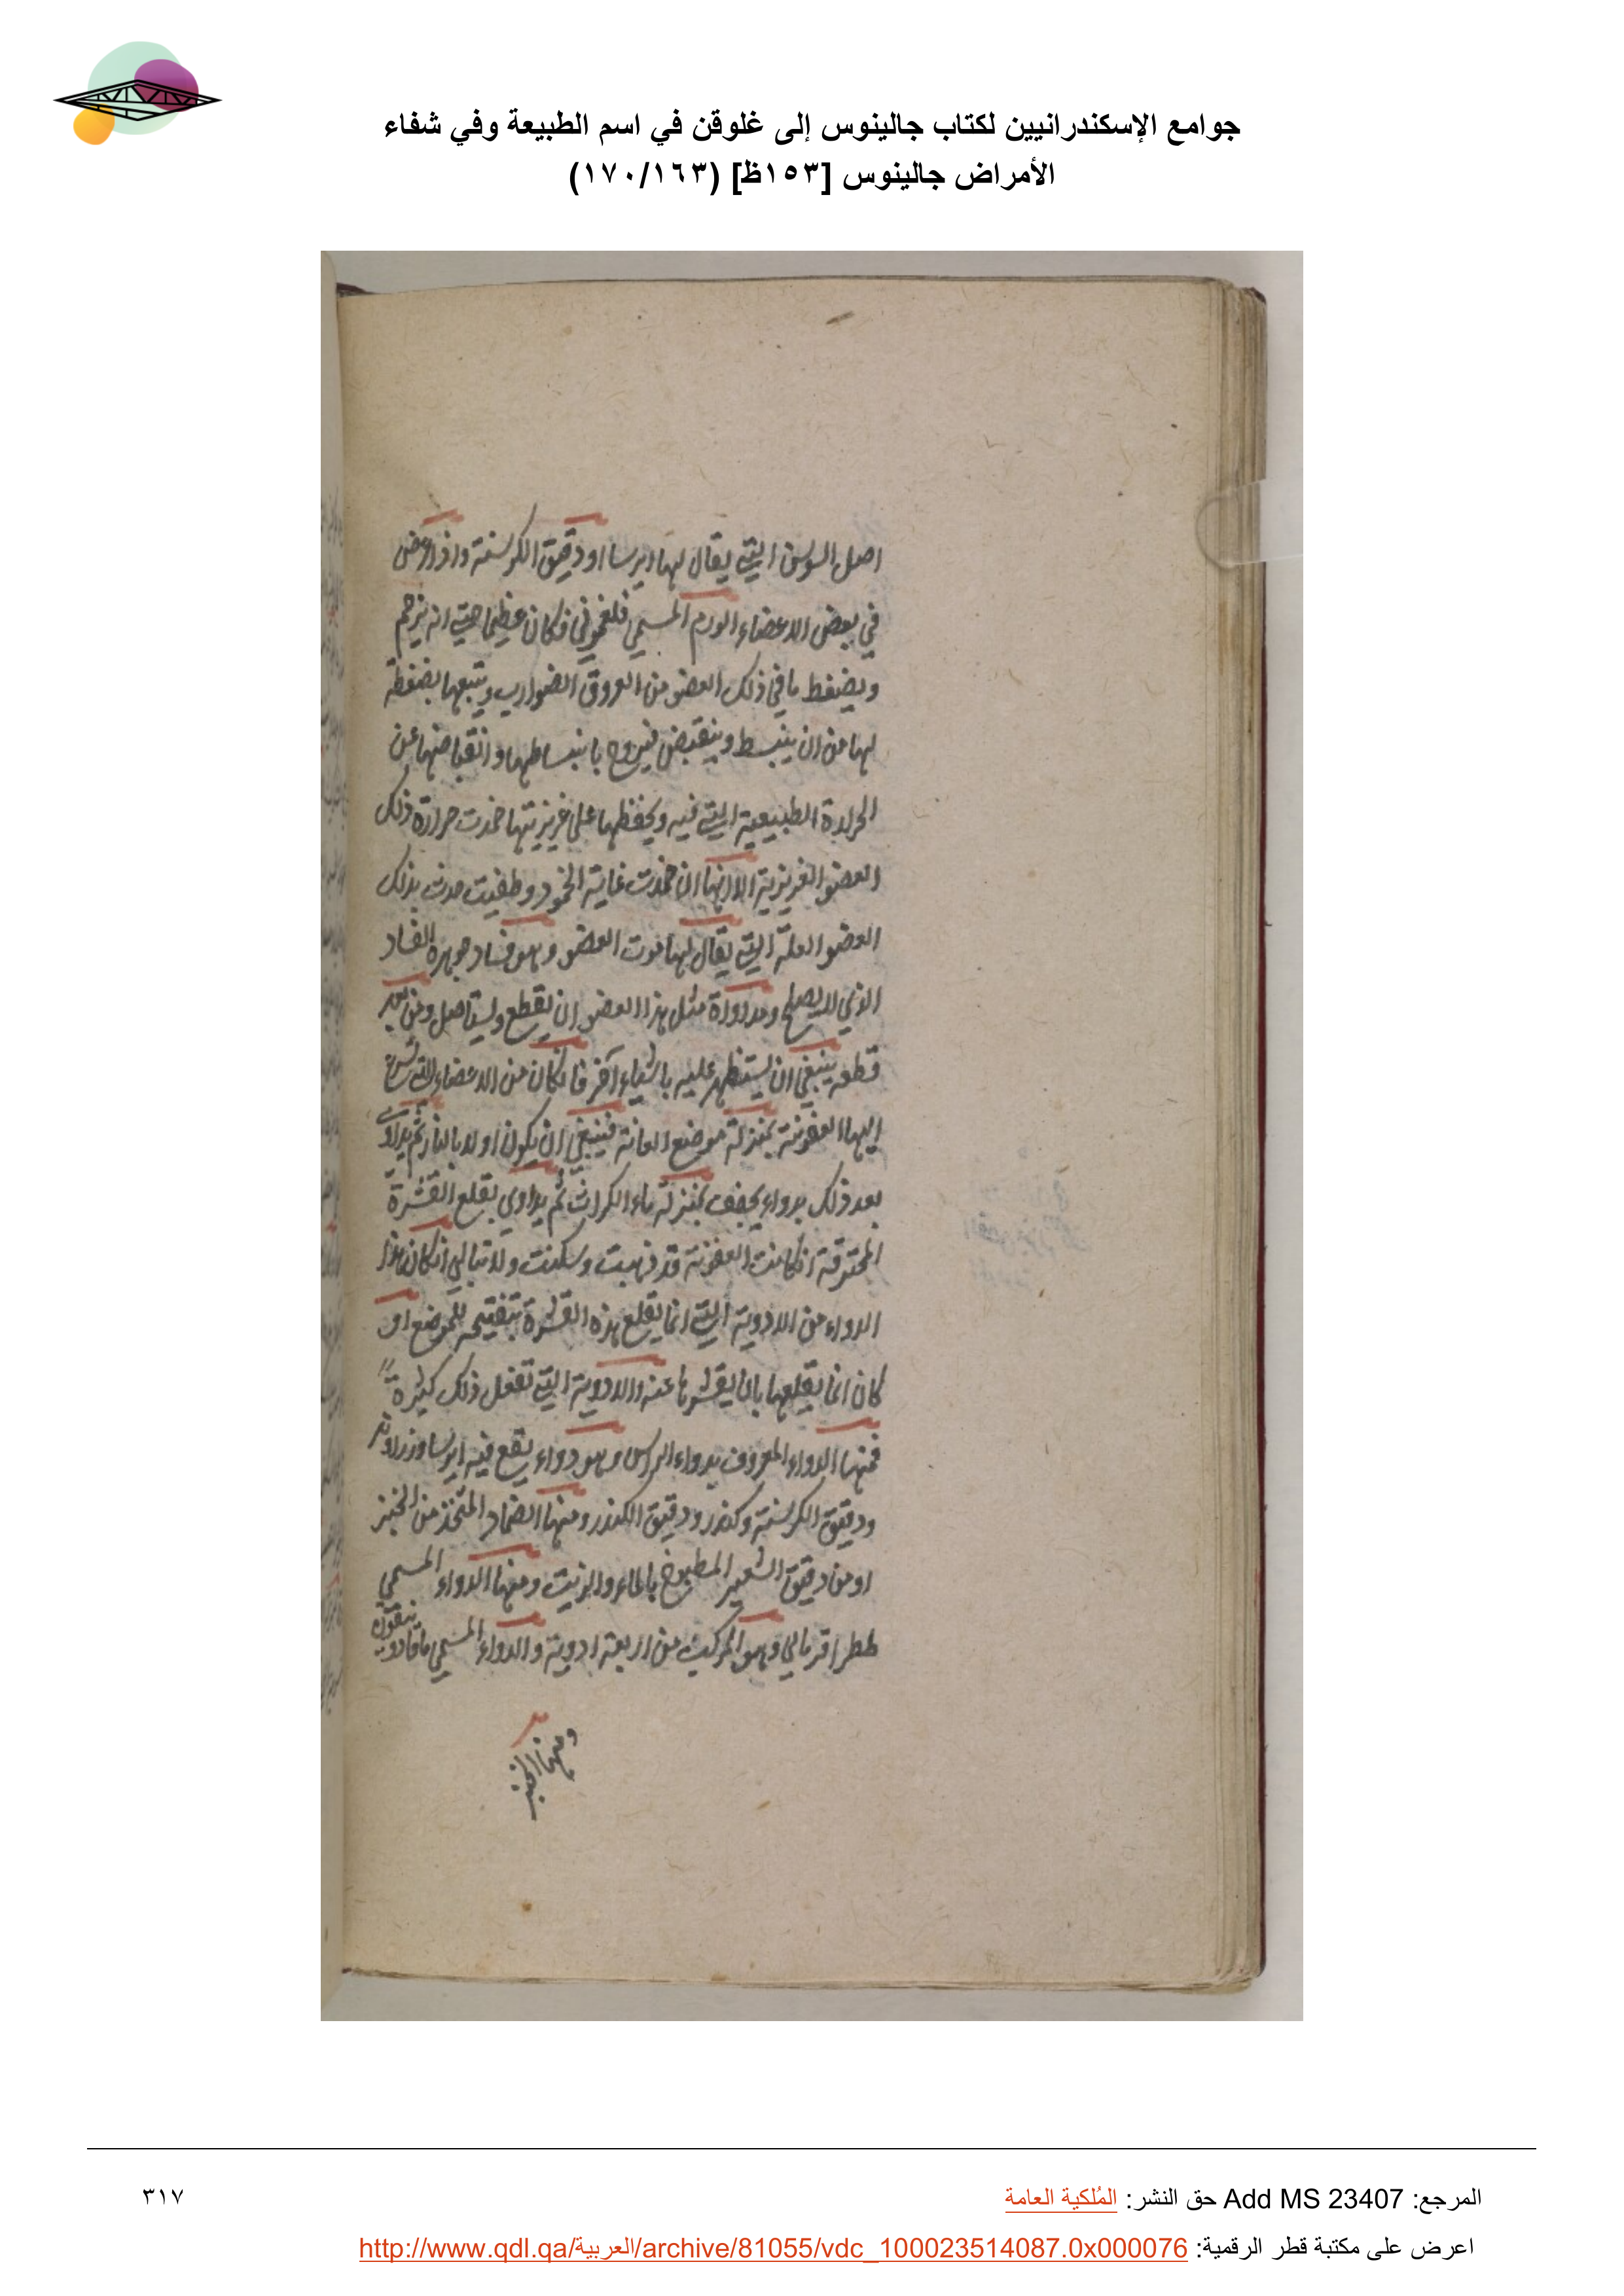 جوامع الإسكندرانيين لكتاب جالينوس إلى غلوقن في اسم الطبيعة وفي شفاء
الأمراض جالينوس [١٥٣ظ] (١٧٠/١٦٣)
اصل السوسن التي يقال لها ايرسا او دقيق الكرسنة واذا عرض
في بعض الاعضاء الورم المسمي فلغموني فكان عظيما حتي انه يزحم
ويضغط ما في ذلك العضو من العروق الضوارب ويتبعها بضغطه
لها من ان ينبسط وينقبض فيروح بانبساطها وانقباضها عن
الحرارة الطبيعية التي فيه ويحفظها علي غريزيتها خمدت حرارة ذلك
العضو الغريزية الا انها ان خمدت غاية الخمود وطفيت حدث بذلك
العضو العلة التي يقال لها موت العضو وهو فساد جوهره الفساد
الذي لا يصلح ومداواة مثل هذا العضو ان يقطع ويستاصل ومن بعد
قطعه ينبغي ان يستظهر عليه باشياء آخر فان كان من الاعضاء التي تسرع
اليها العفونة بمنزلة موضع العانة فينبغي ان يكون اولا بالنار ثم يداوي
بعد ذلك بدواء يجفف بمنزلة ماء الكراث ثم يداوي بقلع القشرة
المحترقة ان كانت العفونة قد ذهبت وسكنت ولا تبالي ان كان هذا
الدواء من الادوية التي انما يقلع هذه القشرة بتفتيحه للموضع او
كان انما يقلعها بان يقشرها عنه والادوية التي تفعل ذلك كثيرة
فمنها الدواء المعروف بدواء الراس وهو دواء يقع فيه ايرسا وزراوند
ودقيق الكرسنة وكندر ودقيق الكندر ومنها الضماد المتخذ من الخبز
او من دقيق الشعير المطبوخ بالماء والزيت ومنها الدواء المسمي
ططرافرمالي وهو المركب من اربعة ادوية والدواء المسمي
ومنها الخبز
المرجع: Add MS 23407 حق النشر: المُلكية العامة
٣١٧
اعرض على مكتبة قطر الرقمية: http://www.qdl.qa/العربية/archive/81055/vdc_100023514087.0x000076